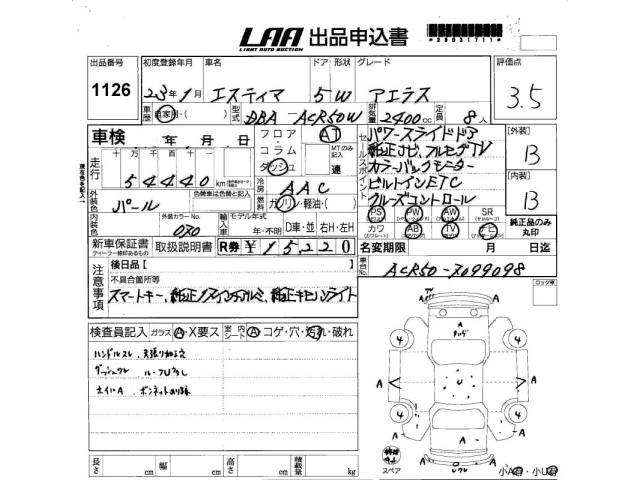 LAA 出品申込書
LIGHT AUTO AUCTION
*28031711*
出品番号 初度登録年月 車名 ドア 形状 グレード 評価点
1126 23年1月 エスティマ 5W アエラス 3.5
車歴 自家用・( ) 型式 DBA-ACR50W 排気量 2400cc 定員 8人
車検 年 月 日 フロア・コラム ダッシュ AT MTのみ記入 速
セールスポイント パワースライドドア [外装]
純正ナビ、フルセグTV B
カラーバックモニター
ビルトインETC [内装]
クルーズコントロール B
走行 十万 万 千 百 十
54440km
冷房 AAC
外装色 パール 色替車は色替と記入 燃料 ガソリン・軽油・( )
PS PW AW SR
内装色 外装カラーNo. 070 輸入車 モデル年式 年・不明 D車・並 右H・左H
カワ AB TV ナビ 純正品のみ丸印
新車保証書 取扱説明書 R券 ¥15220 名変期限 月 日迄
ディーラー捺印あるもの
注意事項 後日品[ ] 車台No. ACR50-7099098
不具合箇所等 ロック車
スマートキー、純正17インチアルミ、純正キセノンライト
検査員記入 ガラス A・X要ス 室内シート A コゲ・穴・汚れ・破れ
ハンドルスレ、天張り
ダッシュワレ ルーフUズレ
ホイルA ボンネット
長さ cm 幅 cm 高さ cm 積載量 kg
スペア 小A・小U